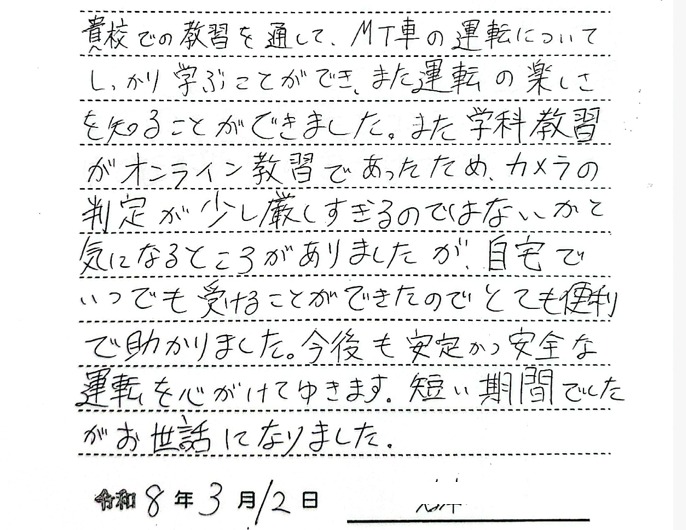 貴校での教習を通して、MT車の運転について
しっかり学ぶことができ、また運転の楽しさ
を知ることができました。また学科教習
がオンライン教習であったため、カメラの
判定が少し厳しすぎるのではないかと
気になるところがありましたが、自宅で
いつでも受けることができたのでとても便利
で助かりました。今後も安定かつ安全な
運転を心がけてゆきます。短い期間でした
がお世話になりました。
令和8年3月12日